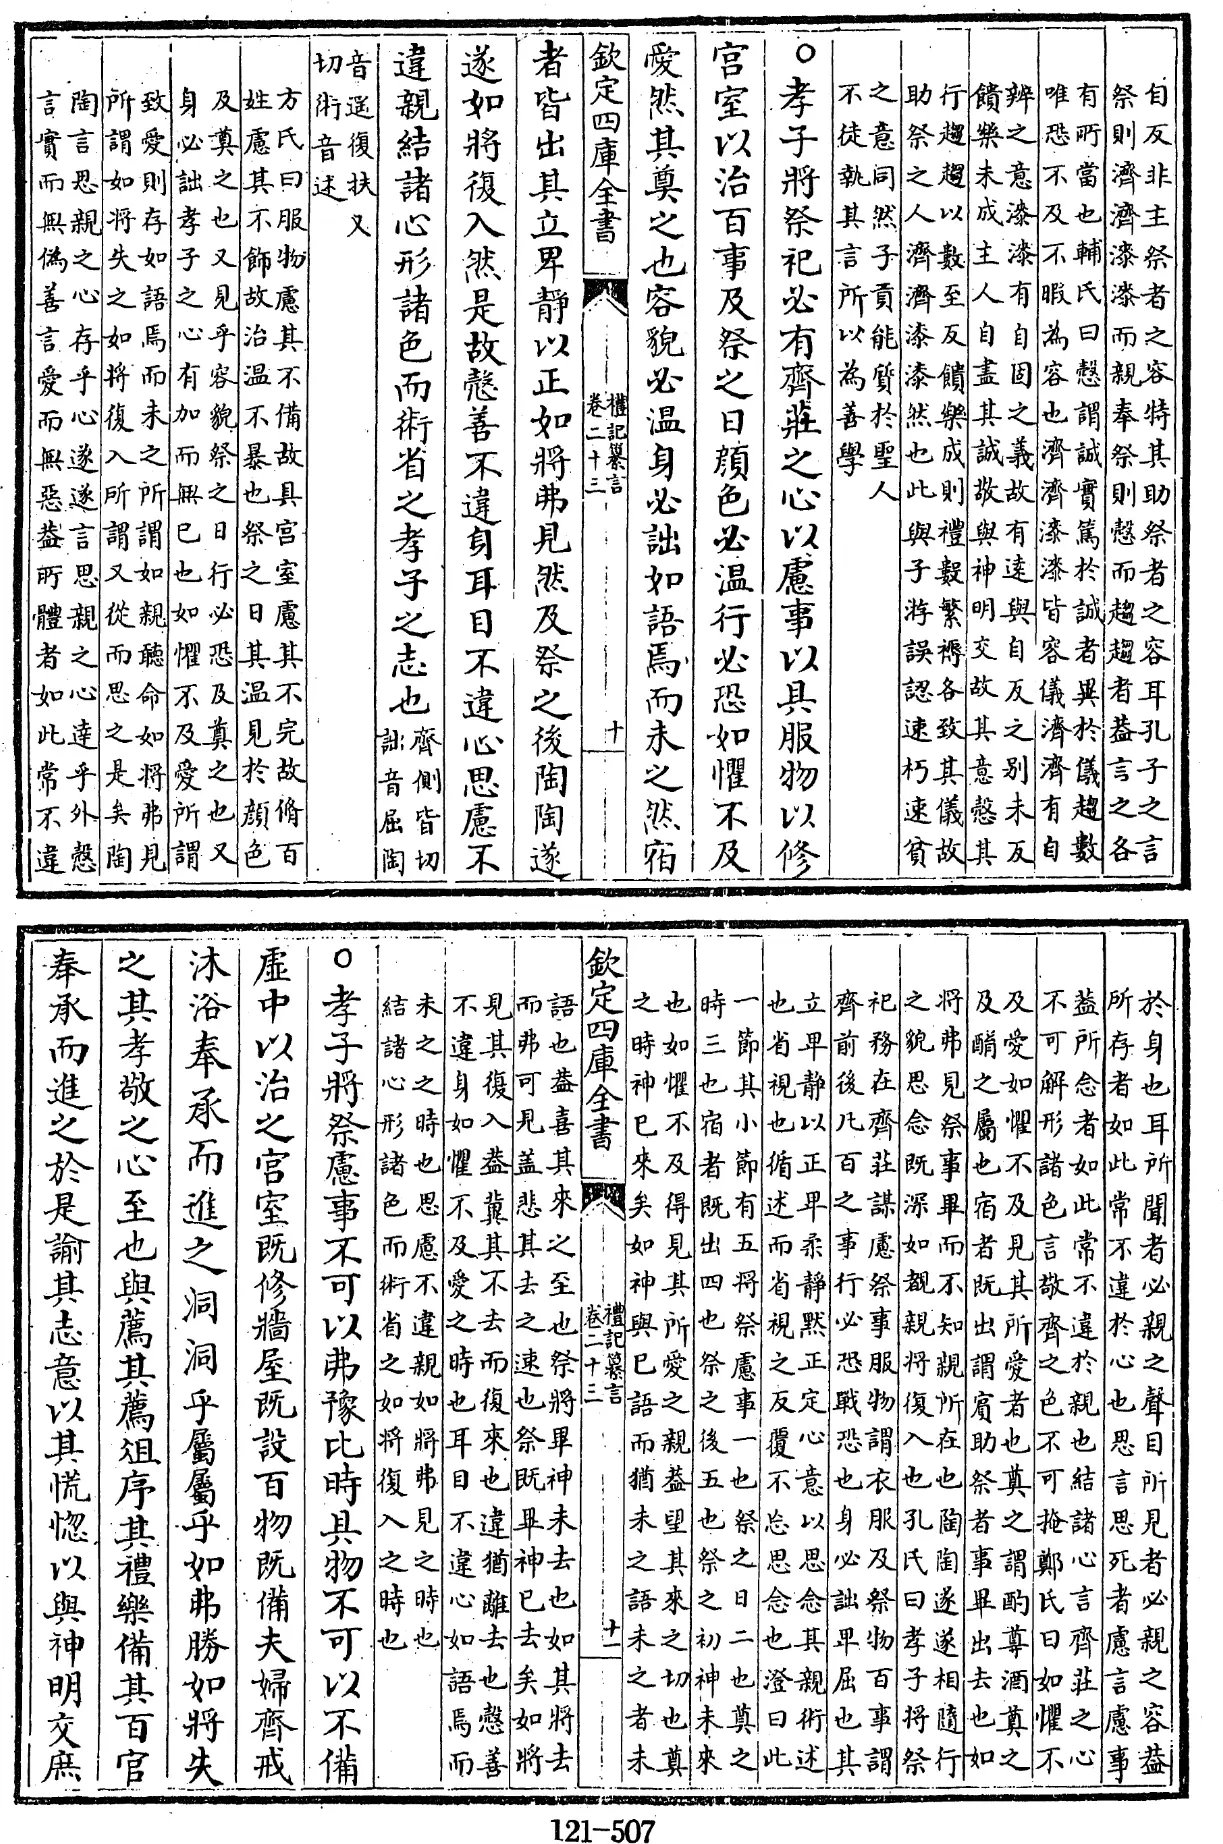 自反非主祭者之容特其助祭者之容耳孔子之言
祭則濟濟漆漆而親奉祭則慤而趨趨者葢言之各
有所當也輔氏曰慤謂誠實篤於誠者異於儀趨數
唯恐不及不暇為容也濟濟漆漆皆容儀濟濟有自
辨之意漆漆有自固之義故有逺與自反之别未反
饋樂未成主人自盡其誠敬與神明交故其意慤其
行趨趨以數至反饋樂成則禮數繁縟各致其儀故
助祭之人濟濟漆漆然也此與子游誤認速朽速貧
之意同然子貢能質於聖人
不徒執其言所以為善學
○孝子將祭祀必有齊莊之心以慮事以具服物以修
宫室以治百事及祭之日顔色必温行必恐如懼不及
愛然其奠之也容貌必温身必詘如語焉而未之然宿
欽定四庫全書
禮記纂言
卷二十三
十
者皆出其立卑靜以正如將弗見然及祭之後陶陶遂
遂如將復入然是故慤善不違身耳目不違心思慮不
違親結諸心形諸色而術省之孝子之志也
齊側皆切
詘音屈陶
音遥復扶又
切術音述
方氏曰服物慮其不備故具宫室慮其不完故脩百
姓慮其不飾故治温不暴也祭之日其温見於顔色
及奠之也又見乎容貌祭之日行必恐及奠之也又
身必詘孝子之心有加而無已也如懼不及愛所謂
致愛則存如語焉而未之所謂如親聽命如將弗見
所謂如將失之如將復入所謂又從而思之是矣陶
陶言思親之心存乎心遂遂言思親之心達乎外慤
言實而無偽善言愛而無惡葢所體者如此常不違
於身也耳所聞者必親之聲目所見者必親之容葢
所存者如此常不違於心也思言思死者慮言慮事
葢所念者如此常不違於親也結諸心言齊莊之心
不可解形諸色言敬齊之色不可掩鄭氏曰如懼不
及愛如懼不及見其所愛者也奠之謂酌尊酒奠之
及酳之屬也宿者既出謂賔助祭者事畢出去也如
將弗見祭事畢而不知親所在也陶陶遂遂相隨行
之貌思念既深如覩親將復入也孔氏曰孝子將祭
祀務在齊莊謀慮祭事服物謂衣服及祭物百事謂
齊前後凡百之事行必恐戰恐也身必詘卑屈也其
立卑靜以正卑柔靜默正定心意以思念其親術述
也省視也循述而省視之反覆不忘思念也澄曰此
一節其小節有五將祭慮事一也祭之日二也奠之
時三也宿者既出四也祭之後五也祭之初神未來
也如懼不及得見其所愛之親葢望其來之切也奠
之時神已來矣如神與已語而猶未之語未之者未
欽定四庫全書
禮記纂言
卷二十三
十一
語也葢喜其來之至也祭將畢神未去也如其將去
而弗可見葢悲其去之速也祭既畢神已去矣如將
見其復入葢冀其不去而復來也違猶離去也慤善
不違身如懼不及愛之時也耳目不違心如語焉而
未之之時也思慮不違親如將弗見之時也
結諸心形諸色而術省之如將復入之時也
○孝子將祭慮事不可以弗豫比時具物不可以不備
虛中以治之宫室既修牆屋既設百物既備夫婦齊戒
沐浴奉承而進之洞洞乎屬屬乎如弗勝如將失
之其孝敬之心至也與薦其薦俎序其禮樂備其百官
奉承而進之於是諭其志意以其慌惚以與神明交庶
121-507